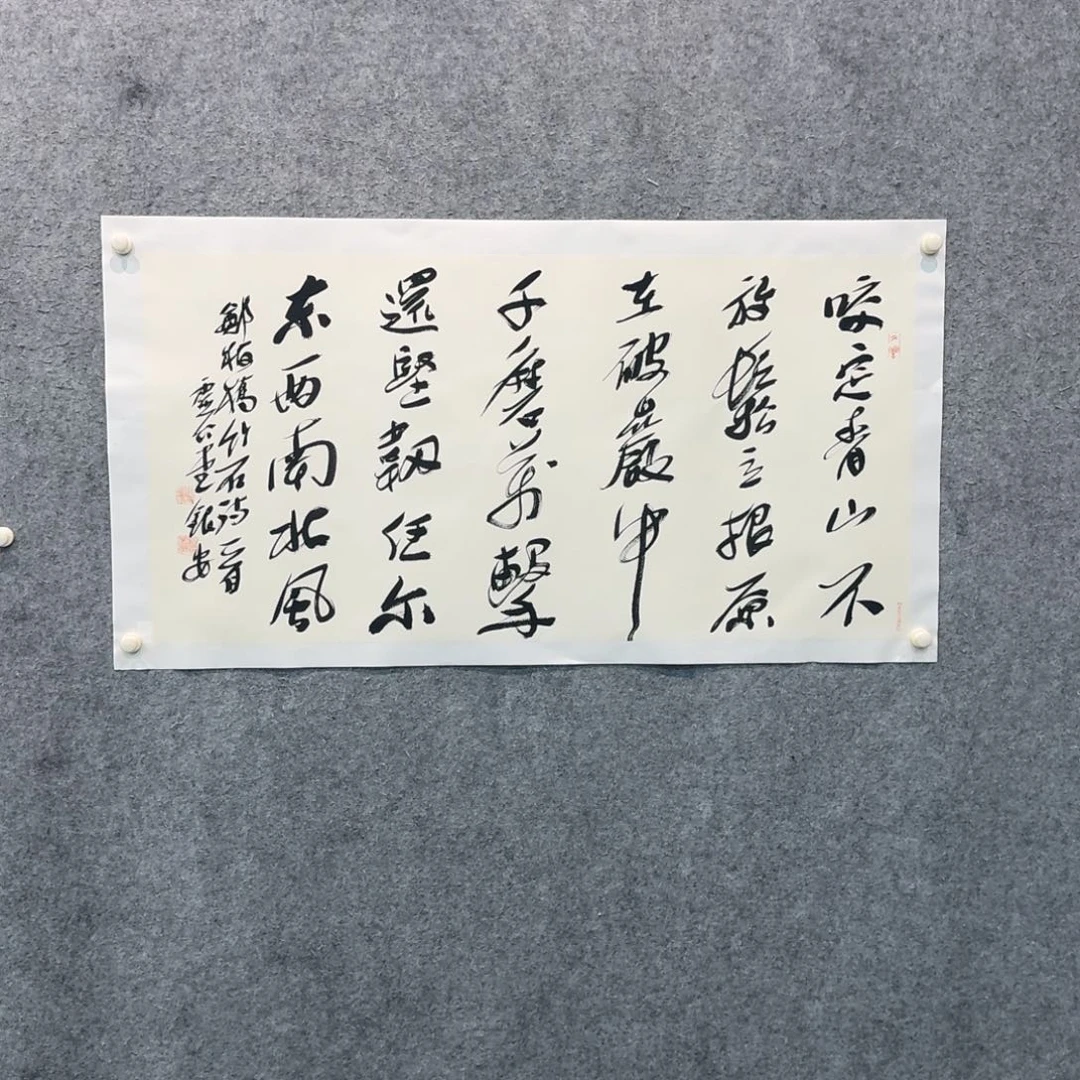 咬定青山不
放鬆立根原
在破巖中
千磨萬擊
還堅韌任尔
东西南北風
鄭板橋竹石詩一首
銀安